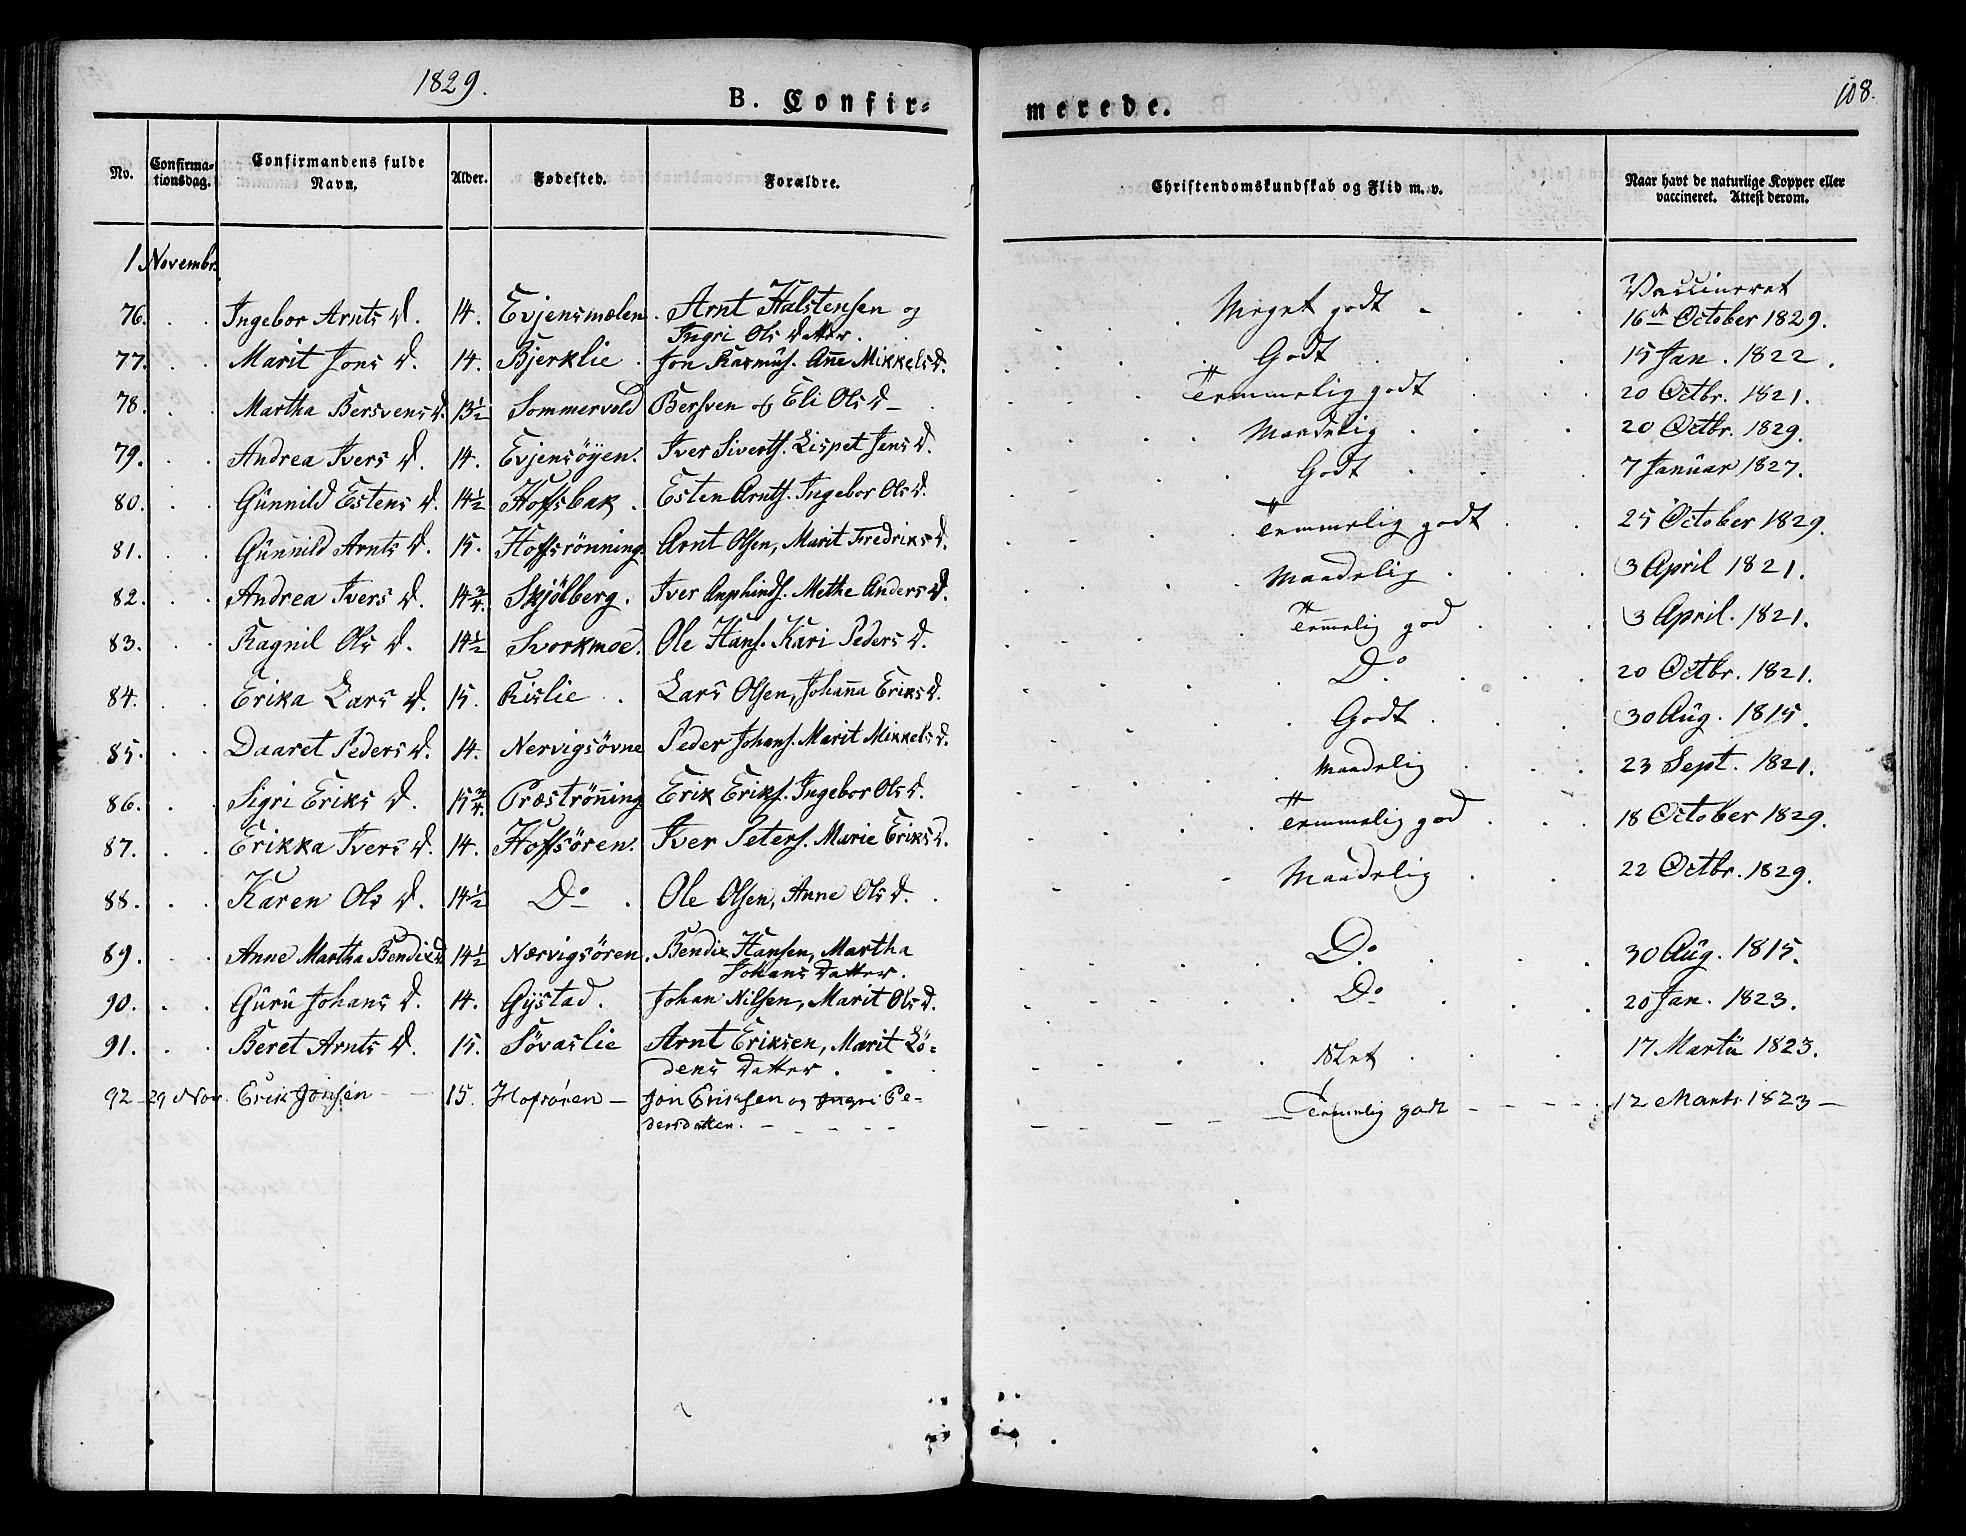 1829.
108.
B. Confir=
merede.
No.
Confirma=
tionsdag.
Confirmandens fulde
Navn.
Alder.
Fødested.
Forældre.
Christendomskundskab og Flid m. v.
Naar havt de naturlige Kopper eller
vaccineret. Attest derom.
1 Novembr.
Vaccineret
76. Ingebor Arnts D. 14. Evjensmælen. Arnt Halstensen og Meget godt 16de October 1829.
Ingri Ols Datter.
77. Marit Jons D. 14. Bjerklie Jon Rasmuss. Anne Mikkelsd. Godt 15 Jan. 1822.
78. Martha Bersvens D. 13½ Sommervold Bersven og Eli Ols D Temmelig godt 20 Octbr. 1821.
79. Andrea Ivers D. 14. Evjensöyen. Iver Siverts. Lispet Jens D. Maadelig 20 Octbr. 1829.
80. Günnild Estens D. 14½ Hoffsbak Esten Arnts. Ingebor Ols D. Godt 7 Januar 1827.
81. Günnild Arnts D. 15. Hoffsrönning Arnt Olsen, Marit Fredriks D. Temmelig godt 25 October 1829.
82. Andrea Ivers D. 14¾. Skjölberg. Iver Anphinds. Methe Anders D. Maadelig 3 April 1821.
83. Ragnil Ols D. 14½ Svorkmoe. Ole Hans. Kari Peders D. Temelig god 3 April. 1821.
84. Erika Lars D. 15. Rislie Lars Olsen, Johanna Eriks D. Do 20 Octbr. 1821.
85. Daaret Peders D. 14. Nervigsövne Peder Johans. Marit Mikkels D. Godt 30 Aug. 1815.
86. Sigri Eriks D. 15¾. Præströnning Erik Eriks. Ingebor Ols D. Maadelig 23 Sept. 1821.
87. Erikka Ivers D. 14. Hoffsören. Iver Peters. Marie Eriks D. Temmelig god 18 October 1829.
88. Karen Ols D. 14½ Do Ole Olsen, Anne Ols D. Maadelig 22 Octbr. 1829.
89. Anne Martha Bendix D 14½ Nærvigsören. Bendix Hansen, Martha Do 30 Aug. 1815.
Johans Datter.
90. Guru Johans D. 14. Gystad. Johan Nilsen, Marit Ols D. Do 20 Jan. 1823.
91. Beret Arnts D. 15. Sövaslie Arnt Eriksen, Marit Lö= Slet 17 Martii 1823.
dens Datter.
92 29 Nov. Erik Jonsen 15. Hofsøren Jon Eriksen og Ingri Pe- Temmelig godt 12 Marts 1823
dersdatter.